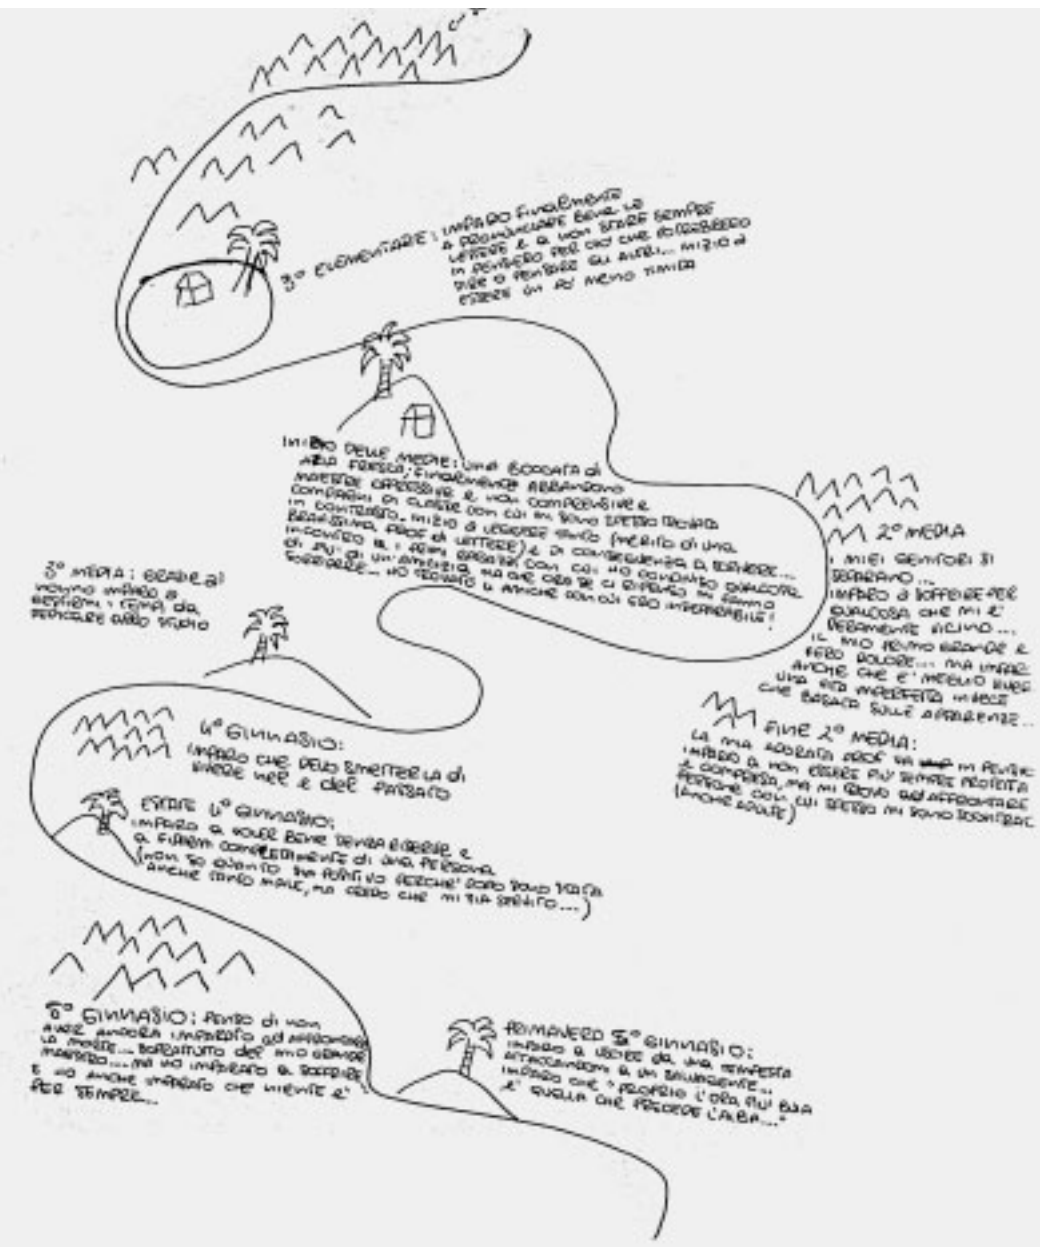 3° ELEMENTARE: IMPARO FINALMENTE
A PRONUNCIARE BENE LE
LETTERE E A NON STARE SEMPRE
IN PENSIERO PER CIÒ CHE POTREBBERO
DIRE O PENSARE GLI ALTRI... INIZIO A
ESSERE UN PO' MENO TIMIDA
INIZIO DELLE MEDIE: UNA BOCCATA di
ARIA FRESCA; FINALMENTE ABBANDONO
MAESTRE OPPRESSIVE E NON COMPRENSIVE E
COMPAGNI DI CLASSE CON CUI MI SONO SPESSO TROVATA
IN CONTRASTO. INIZIO A LEGGERE TANTO (MERITO DI UNA
BRAVISSIMA PROF DI LETTERE) E DI CONSEGUENZA A SCRIVERE...
INCONTRO I PRIMI RAGAZZI CON CUI HO CONDIVISO QUALCOSA
DI PIÙ DI UN'AMICIZIA, MA CHE ORA SE CI RIPENSO MI FANNO
SORRIDERE... HO TROVATO AMICHE CON CUI ERO INSEPARABILE!
2° MEDIA
I MIEI GENITORI SI
SEPARANO...
IMPARO A SOFFRIRE PER
QUALCOSA CHE MI E'
VERAMENTE VICINO...
IL MIO PRIMO GRANDE E
VERO DOLORE... MA
ANCHE CHE E' MEGLIO
UNA VITA IMPERFETTA INVECE
CHE BASATA SULLE APPARENZE...
FINE 2° MEDIA:
LA MIA ADORATA PROF VA IN
IMPARO A NON ESSERE PIÙ SEMPRE PROTETTA
E COMPRESA, MA MI TROVO AD AFFRONTARE
PERSONE CON CUI SPESSO MI SONO
(ANCHE ADULTE)
3° MEDIA: GRAZIE AL
IMPARO A
GESTIRMI I TEMPI DA
DEDICARE ALLO STUDIO
4° GINNASIO:
IMPARO CHE DEVO SMETTERLA di
VIVERE NEL E del PASSATO
ESTATE 4° GINNASIO:
IMPARO A VOLER BENE SENZA RISERVE E
A FIDARMI COMPLETAMENTE di UNA PERSONA
(NON SO QUANTO SIA POSITIVO PERCHE' DOPO SONO STATA
ANCHE TANTO MALE, MA CREDO CHE MI SIA SERVITO...)
5° GINNASIO: PENSO di NON
AVER ANCORA IMPARATO ad AFFRONTARE
LA MORTE... SOPRATTUTTO del MIO GRANDE
MAESTRO.... MA HO IMPARATO A SOFFRIRE
E HO ANCHE IMPARATO CHE NIENTE E'
PER SEMPRE...
PRIMAVERA 5° GINNASIO:
IMPARO A USCIRE DA UNA TEMPESTA
ATTACCANDOMI A UN SALVAGENTE...
IMPARO CHE "PROPRIO L'ORA PIÙ BUIA
E' QUELLA CHE PRECEDE L'ALBA..."